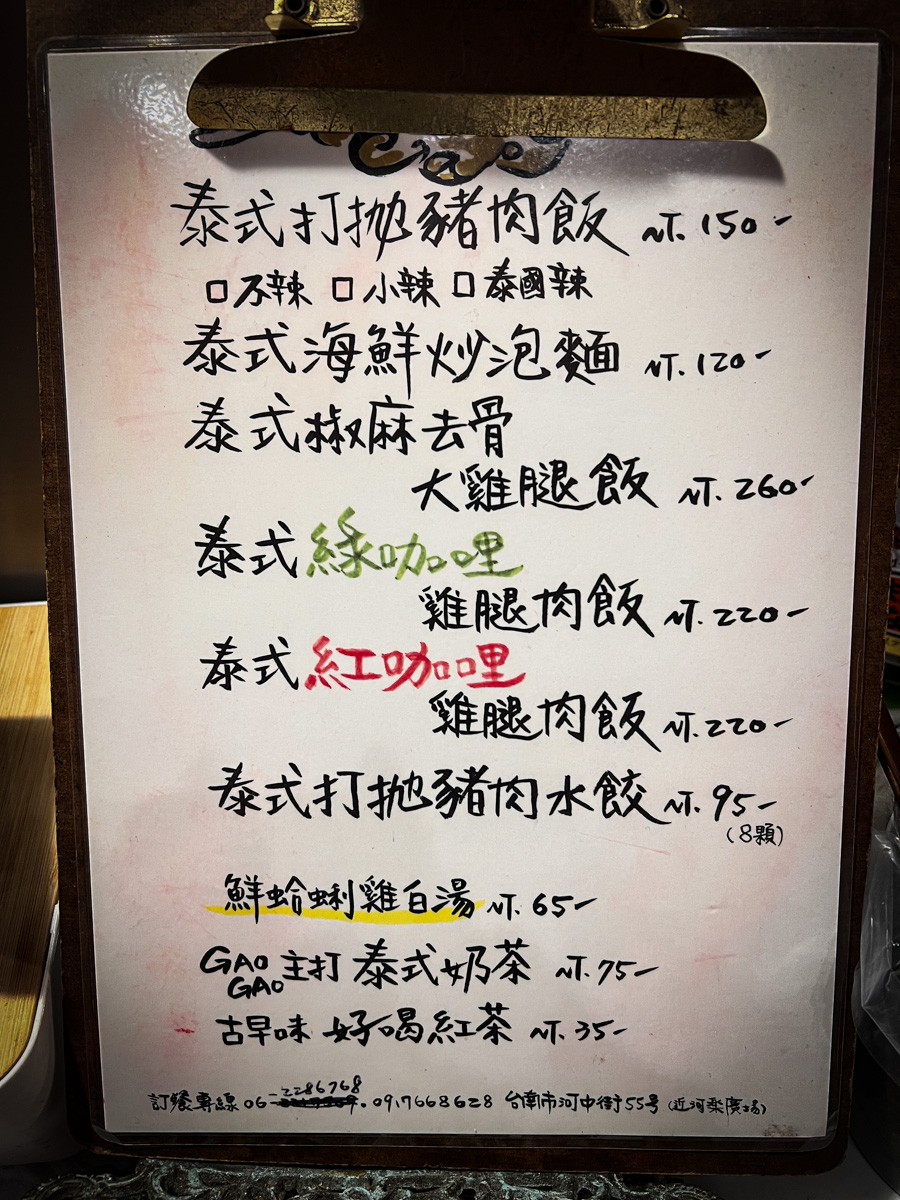 泰式打拋豬肉飯 NT. 150-
□不辣 □小辣 □泰國辣
泰式海鮮炒泡麵 NT. 120-
泰式椒麻去骨
大雞腿飯 NT. 260-
泰式綠咖哩
雞腿肉飯 NT. 220-
泰式紅咖哩
雞腿肉飯 NT. 220-
泰式打拋豬肉水餃 NT. 95-
(8顆)
鮮蛤蜊雞白湯 NT. 65-
GAO GAO 主打 泰式奶茶 NT. 75-
古早味 好喝紅茶 NT. 35-
訂餐專線 06-2286768. 0917668628 台南市河中街55號 (近河樂廣場)